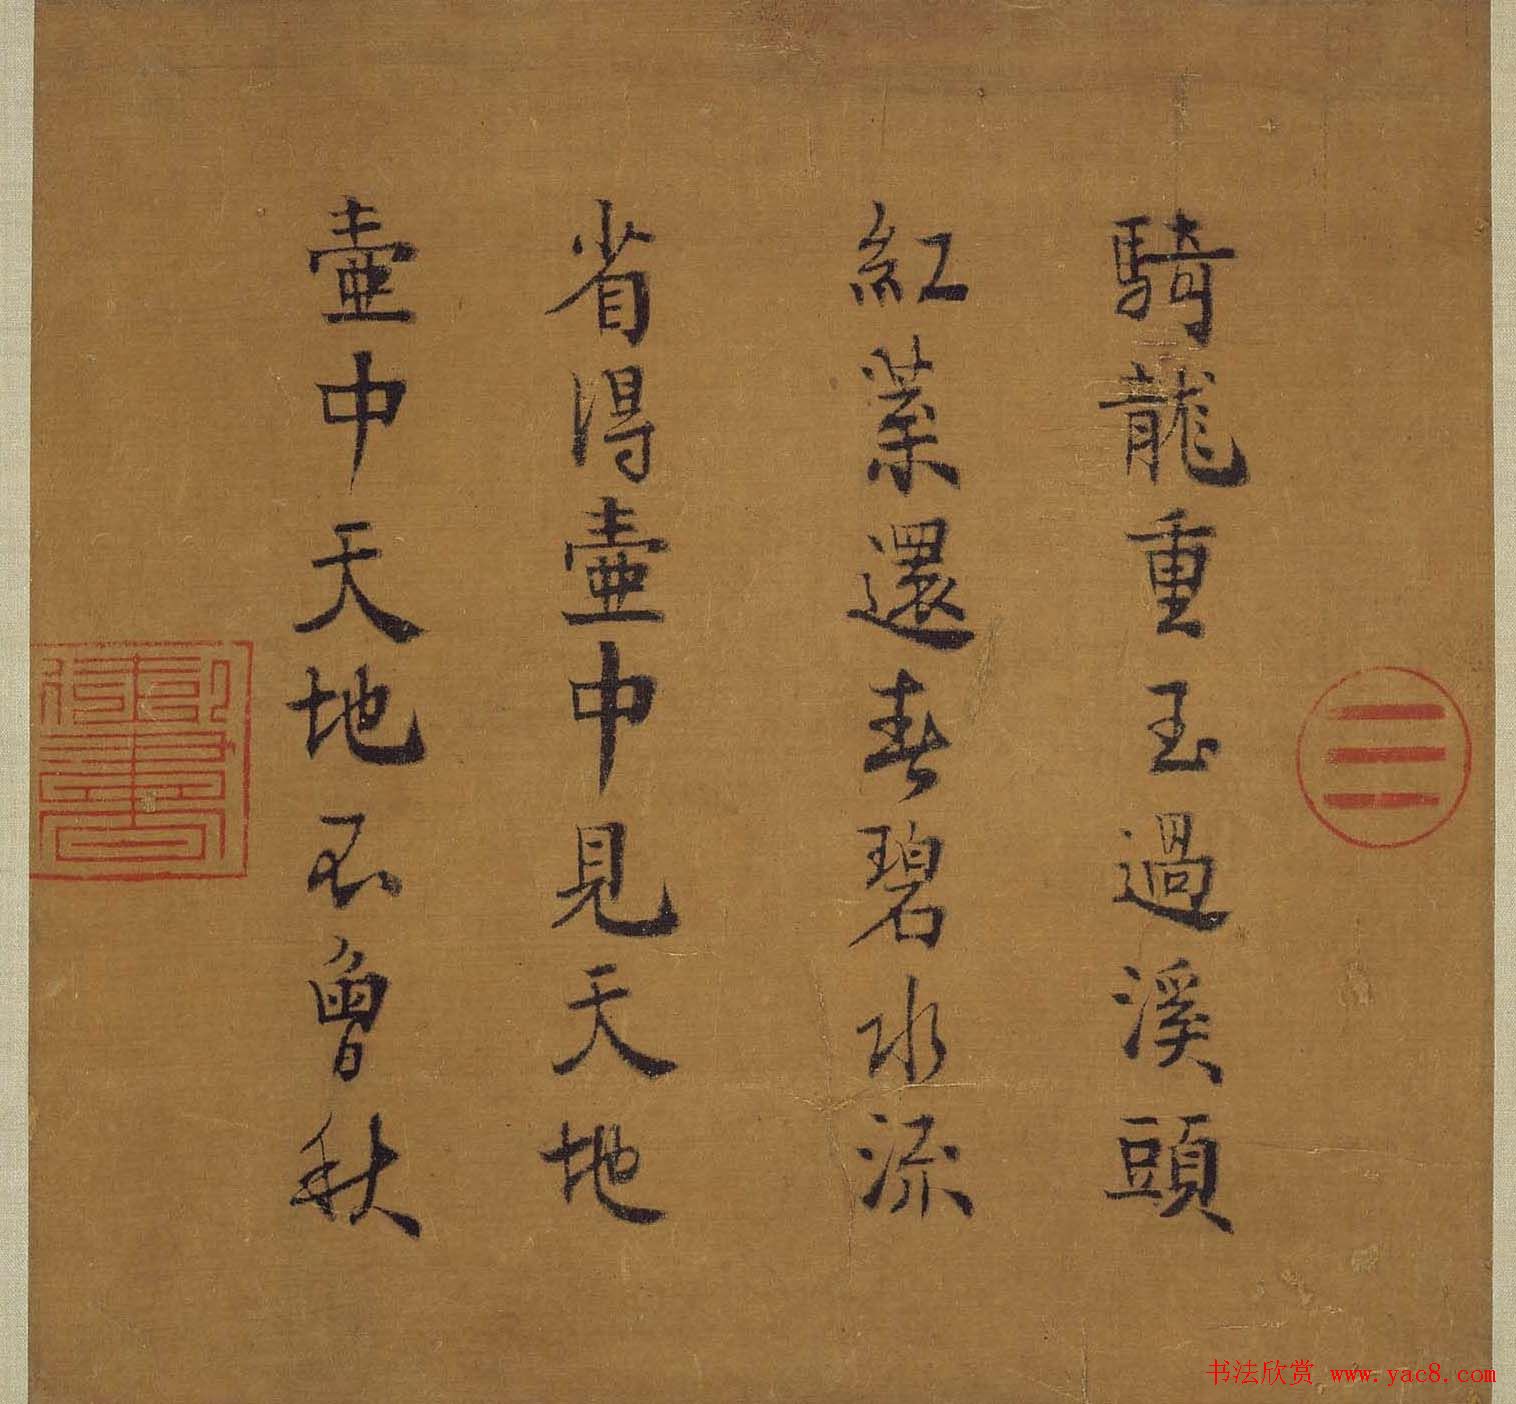 騎龍重玉過溪頭
紅葉還春碧水流
省得壺中見天地
壺中天地不曾秋
☰
书法欣赏 www.yac8.com